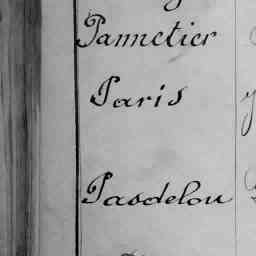 Pannetier
Paris
Pasdelou